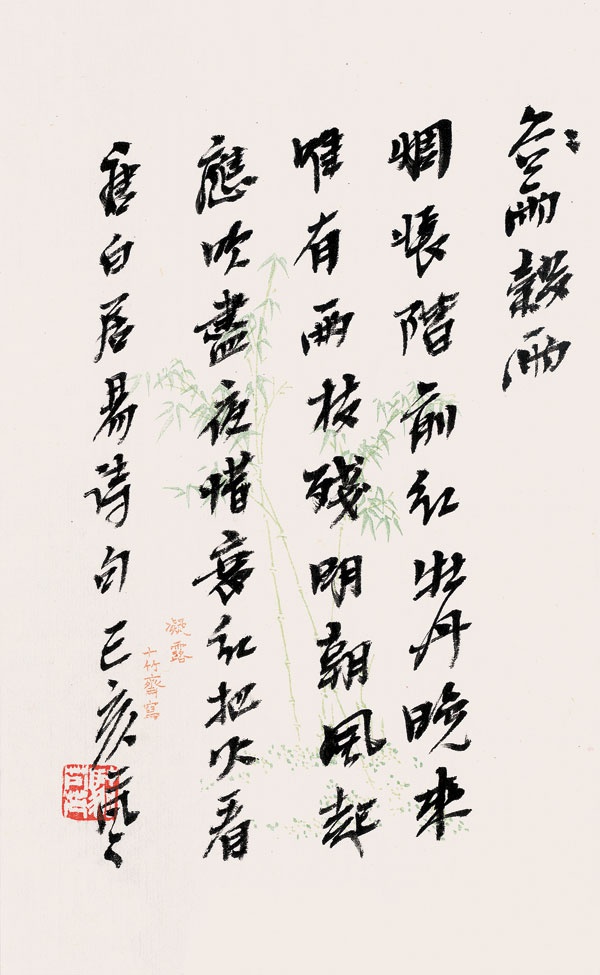 谷雨穀雨
惆悵階前紅牡丹晚來
唯有兩枝殘明朝風起
應吹盡夜惜衰紅把火看
唐白居易詩句己亥
凝露
十竹齋寫